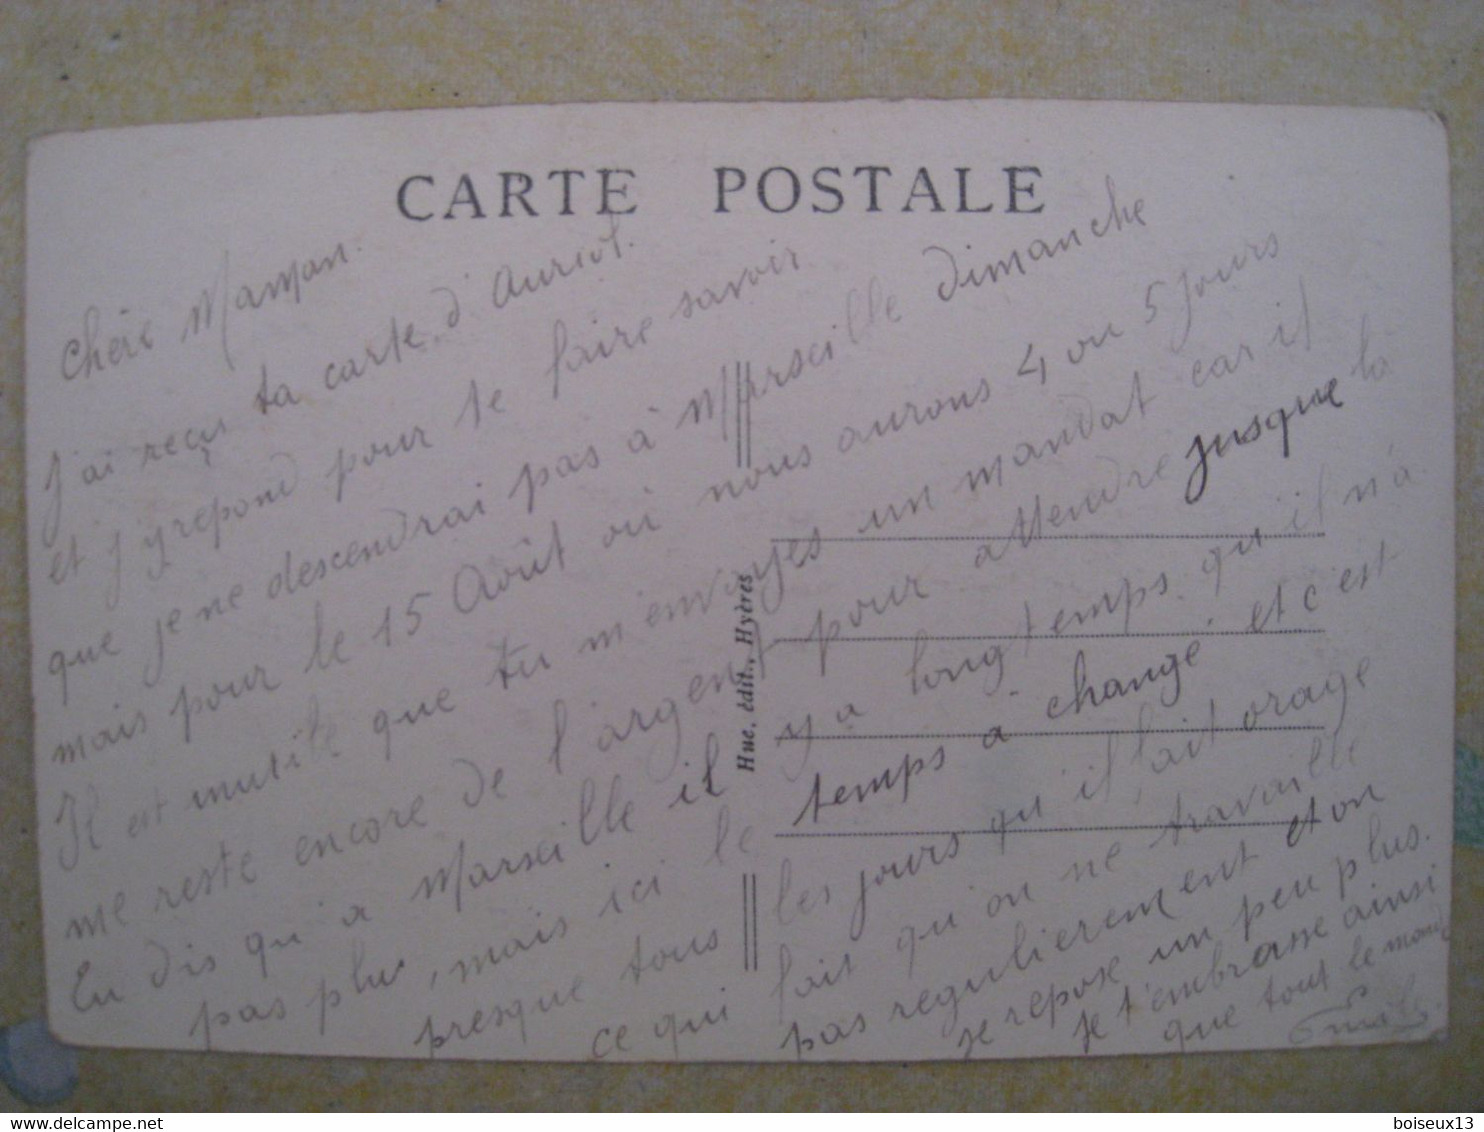 CARTE POSTALE
Chère Maman.
J'ai reçu ta carte d'Auriol.
et j'y repond pour te faire savoir
que je ne descendrai pas à Marseille dimanche
mais pour le 15 Août où nous aurons 4 ou 5 jours
Il est inutile que tu m'envoyes un mandat car il
me reste encore de l'argent pour attendre jusque la
Tu dis qu'a Marseille il y a longtemps qu'il n'a
pas plu, mais ici le temps a changé et c'est
presque tous les jours qu'il fait orage
ce qui fait qu'on ne travaille
pas regulierement et on
se repose un peu plus.
Je t'embrasse ainsi
que tout le monde
Emile
Hue, édit., Hyères
boiseux13